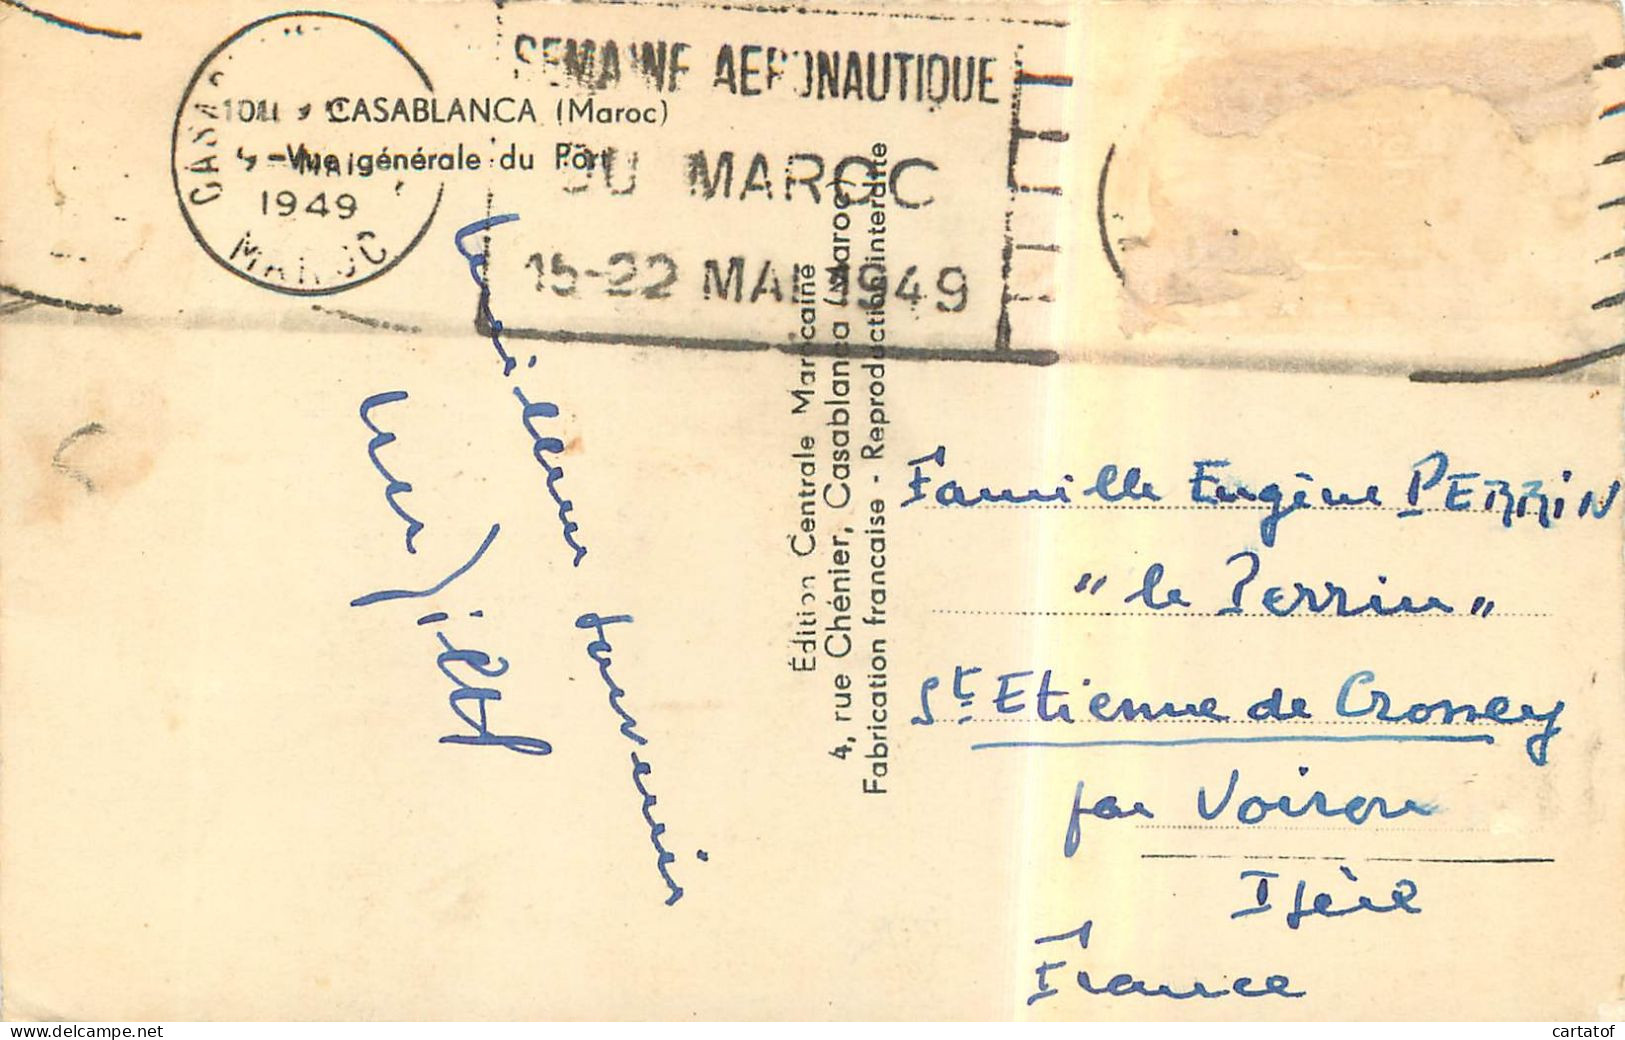 CASABLANCA (Maroc)
Vue générale du Port
MAI
1949
MAROC
SEMAINE AERONAUTIQUE
DU MAROC
15-22 MAI 1949
Édition Centrale Marocaine
4, rue Chénier, Casablanca (Maroc)
Fabrication francaise - Reproduction interdite
Meilleur souvenir
Famille Eugène PERRIN
"le Perrin"
St Etienne de Crossey
par Voiron
Isère
France
cartatof